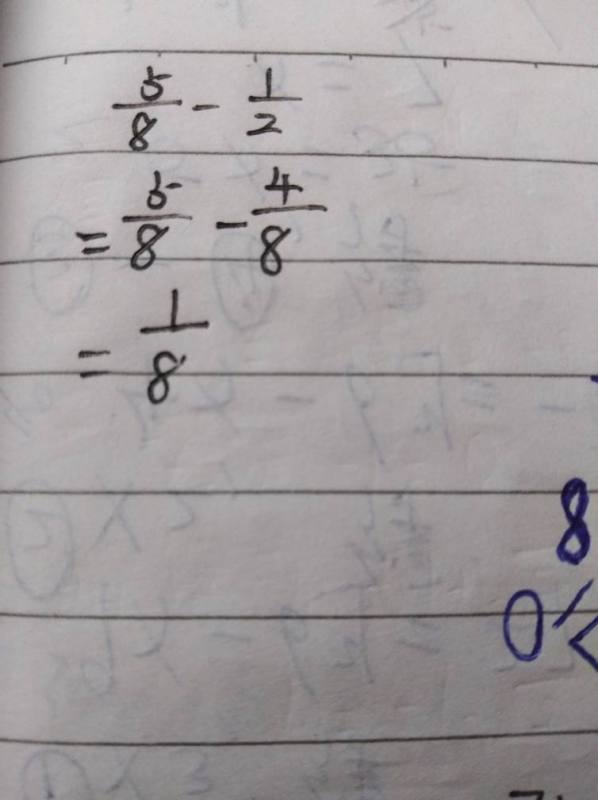 5/8 - 1/2
= 5/8 - 4/8
= 1/8
8